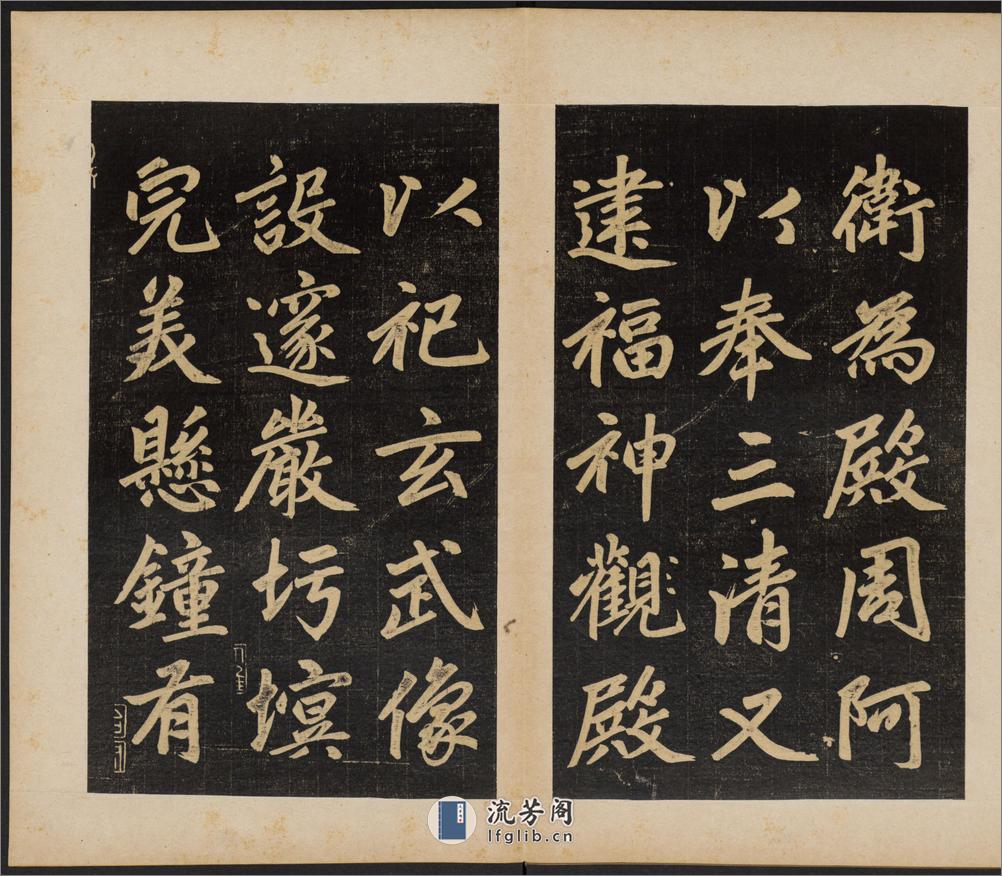 衛為殿周阿
以奉三清又
建福神觀殿
以祀玄武像
設邃嚴圬塓
完美懸鐘有
流芳阁
lfglib.cn